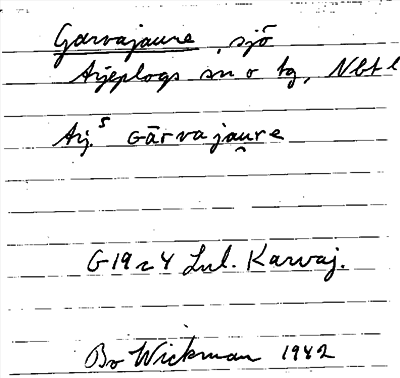 Garvajaure, sjö
Arjeplogs sn o tg, Nbt l
Arj.s Gārvajau̯re
G19 r 4 Lul. Karvaj.
Bo Wickman 1942